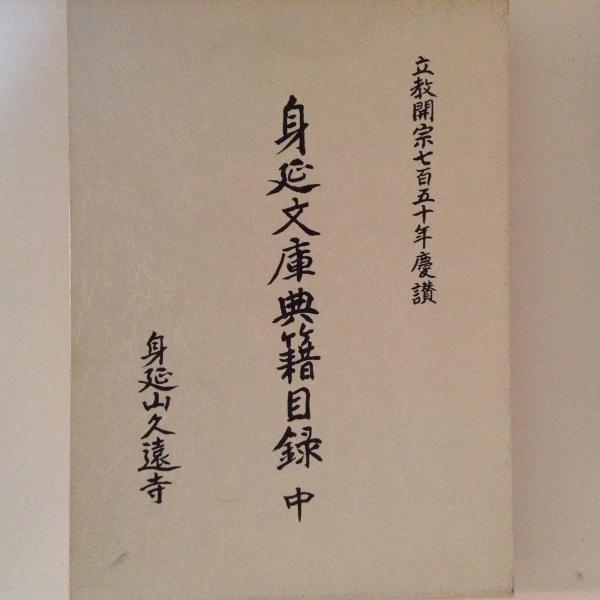 立教開宗七百五十年慶讃
身延文庫典籍目録 中
身延山久遠寺